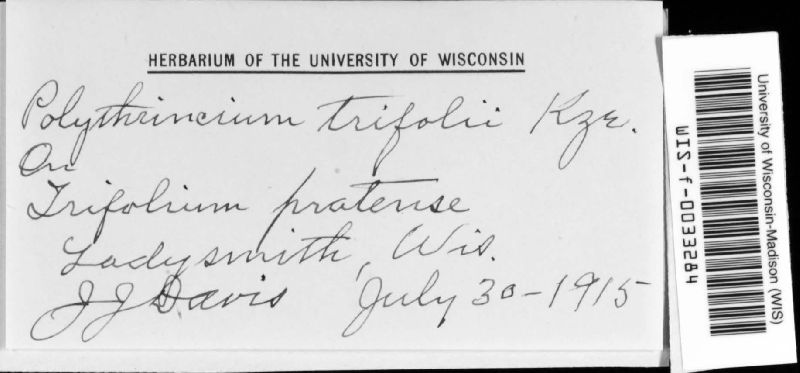 HERBARIUM OF THE UNIVERSITY OF WISCONSIN
Polythrincium trifolii Kze.
On
Trifolium pratense
Ladysmith, Wis.
J J Davis July 30-1915
University of Wisconsin-Madison (WIS)
WIS-f-0033284